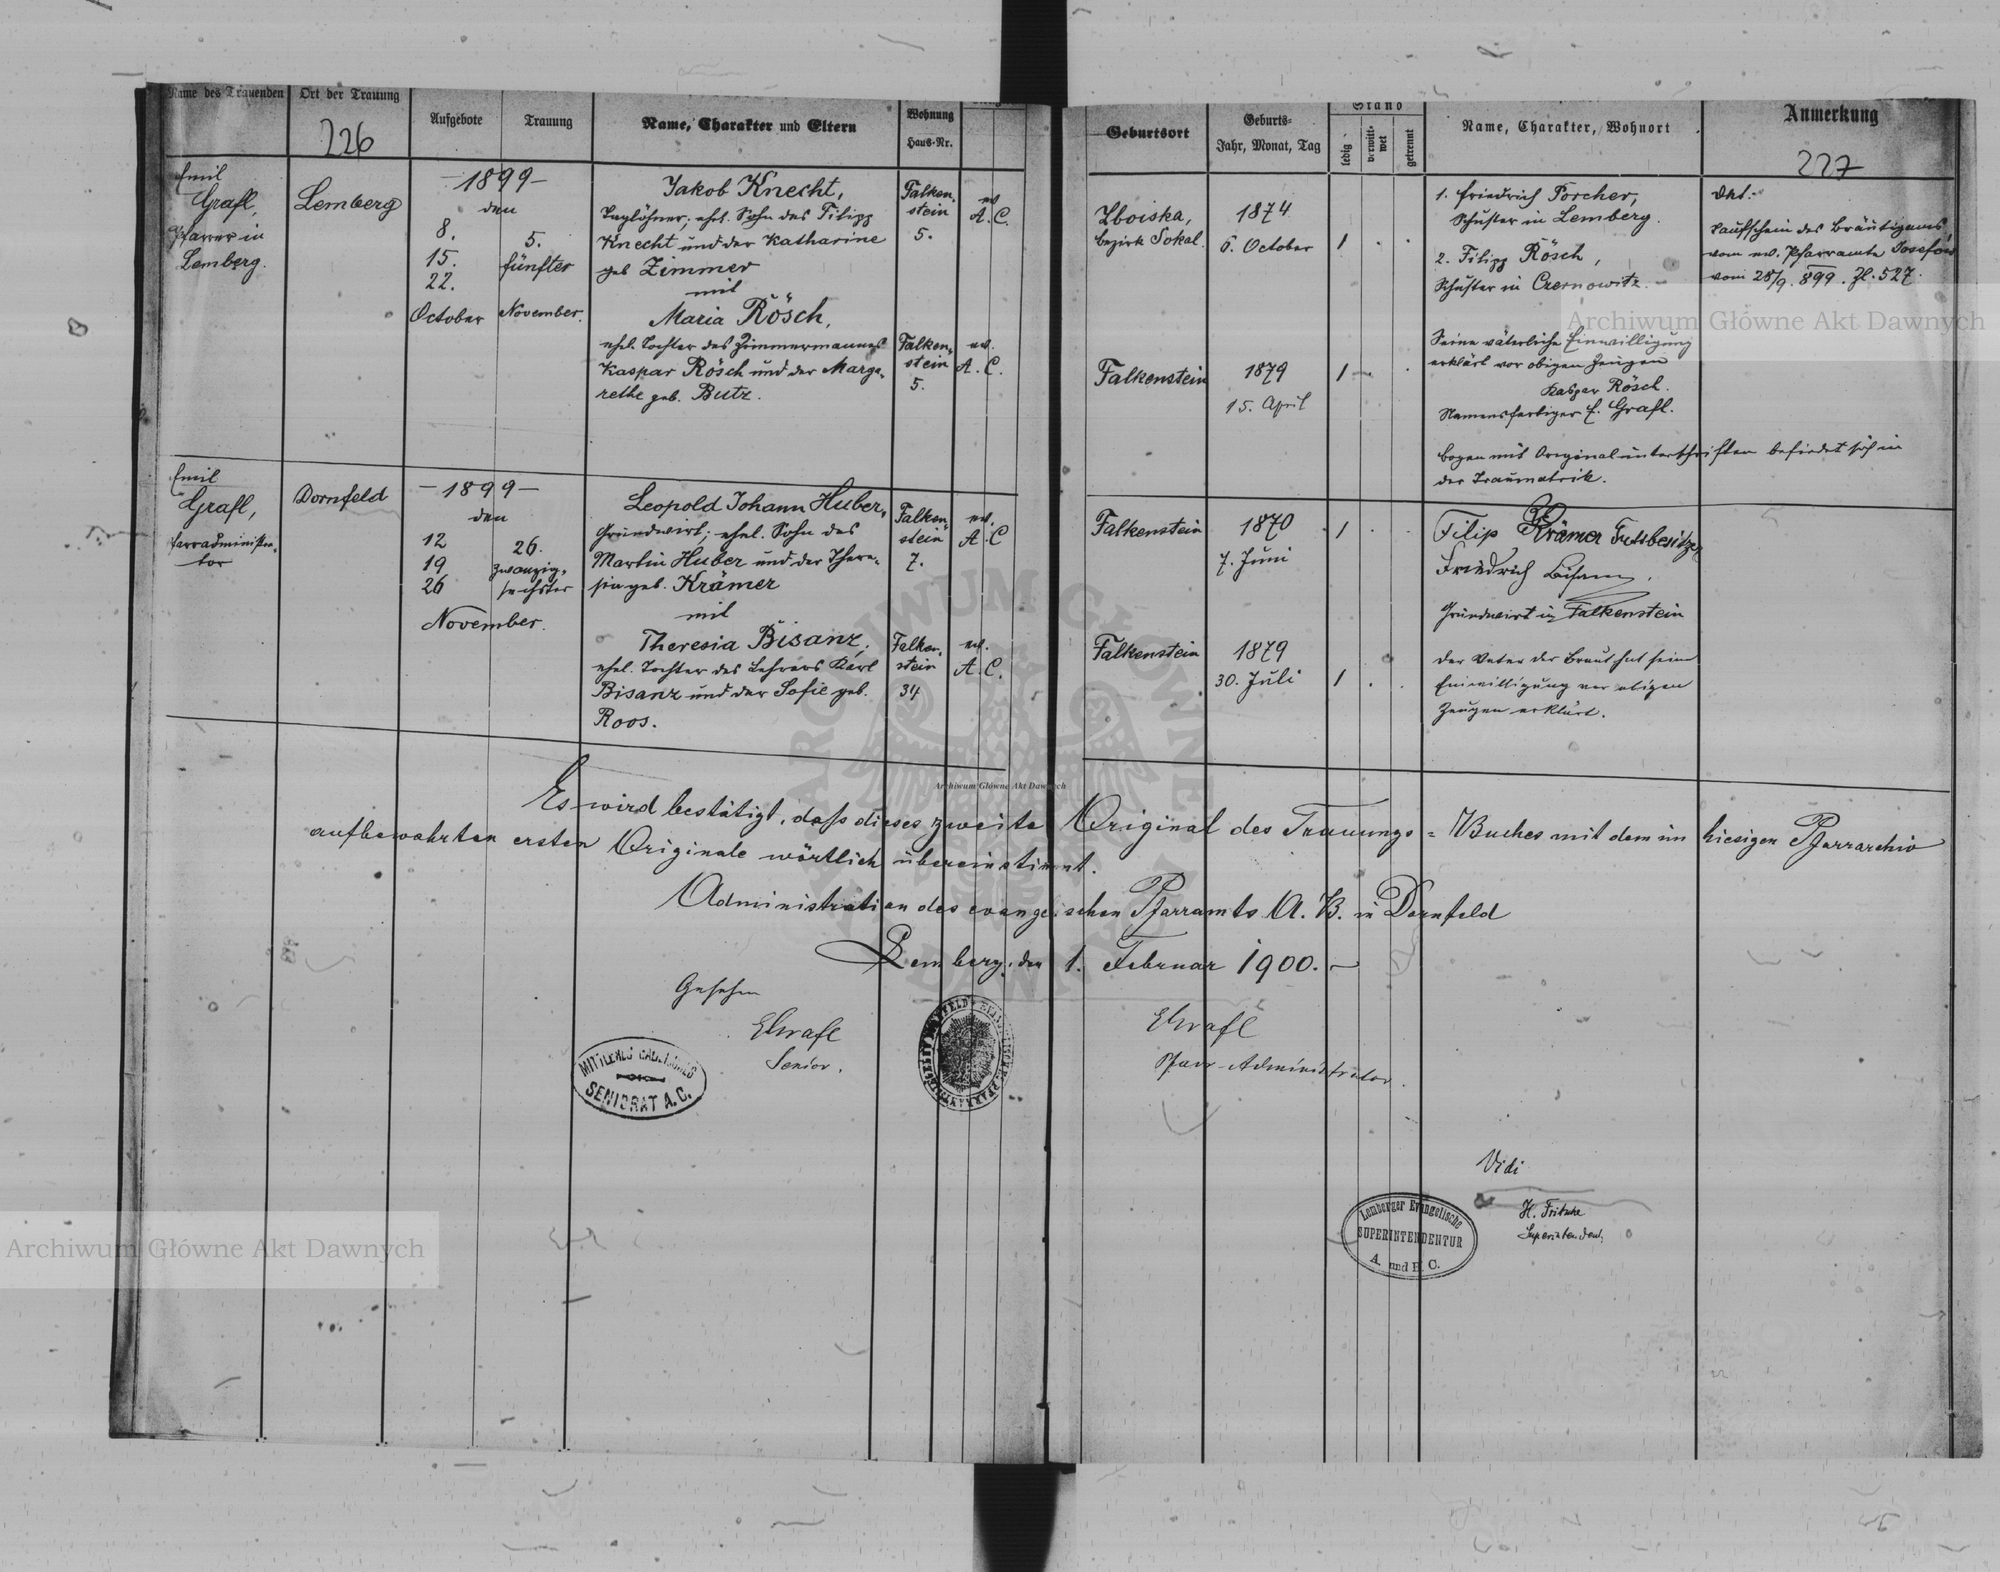 Name des Trauenden
Ort der Trauung
226
Aufgebote
Trauung
Name, Charakter und Eltern
Wohnung
Haus-Nr.
Geburtsort
Geburts-
Jahr, Monat, Tag
Stand
ledig
verwitt-
wet
getrennt
Name, Charakter, Wohnort
Anmerkung
227
Emil
Grafl,
Pfarrer in
Lemberg.
Lemberg
– 1899 –
den
8.
15.
22.
October
5.
fünfter
November.
Jakob Knecht,
Taglöhner; ehel. Sohn des Filipp
Knecht und der Katharine
geb Zimmer
mit
Maria Rösch,
ehel. Tochter des Zimmermannes
Kaspar Rösch und der Marga-
rethe geb. Butz.
Falken-
stein
5.
ev.
A.C.
Falken-
stein
5.
ev.
A.C.
Zboiska,
bezirk Sokal.
1874
6. October
1
Falkenstein
1879
15. April
1
1. Friedrich Porcher,
Schuster in Lemberg.
2. Filipp Rösch,
Schuster in Czernowitz.
Seine väterliche Einwilligung
erklärt vor obigen Zeugen
Kaspar Rösch.
Namensfertiger E. Grafl.
Bogen mit Originalunterschriften befindet sich in
der Traumatrik.
Taufschein des Bräutigams
vom ev. Pfarramte Josefow
vom 28/9. 899. Zl. 527.
Emil
Grafl,
Pfarradministra-
tor
Dornfeld
– 1899 –
den
12
19
26
November.
26.
zwanzig-
sechster
Leopold Johann Huber,
Grundwirt; ehel. Sohn des
Martin Huber und der There-
sia geb. Krämer
mit
Theresia Bisanz,
ehel. Tochter des Lehrers Karl
Bisanz und der Sofie geb.
Roos.
Falken-
stein
7.
ev.
A.C
Falken-
stein
34
ev.
A.C.
Falkenstein
1870
7. Juni
1
Falkenstein
1879
30. Juli
1
Filip Krämer Gutsbesitzer
Friedrich Bisanz,
Grundwirt in Falkenstein
Der Vater der Braut hat seine
Einwilligung vor obigen
Zeugen erklärt.
Es wird bestätigt, dass dieses zweite Original des Trauungs=Buches mit dem im hiesigen Pfarrarchiv
aufbewahrten ersten Originale wörtlich übereinstimmt.
Administration des evangelischen Pfarramts A. B. in Dornfeld
Lemberg, den 1. Februar 1900. –
Gesehen
EGrafl
Senior.
EGrafl
Pfarr-Administrator.
MITTLERES GALIZISCHES
SENIORAT A.C.
Vidi
H. Fritsche
Superintendent.
Lemberger Evangelische
SUPERINTENDENTUR
A. und H. C.
Archiwum Główne Akt Dawnych
Archiwum Główne Akt Dawnych
Archiwum Główne Akt Dawnych
ARCHIWUM GŁÓWNE AKT DAWNYCH